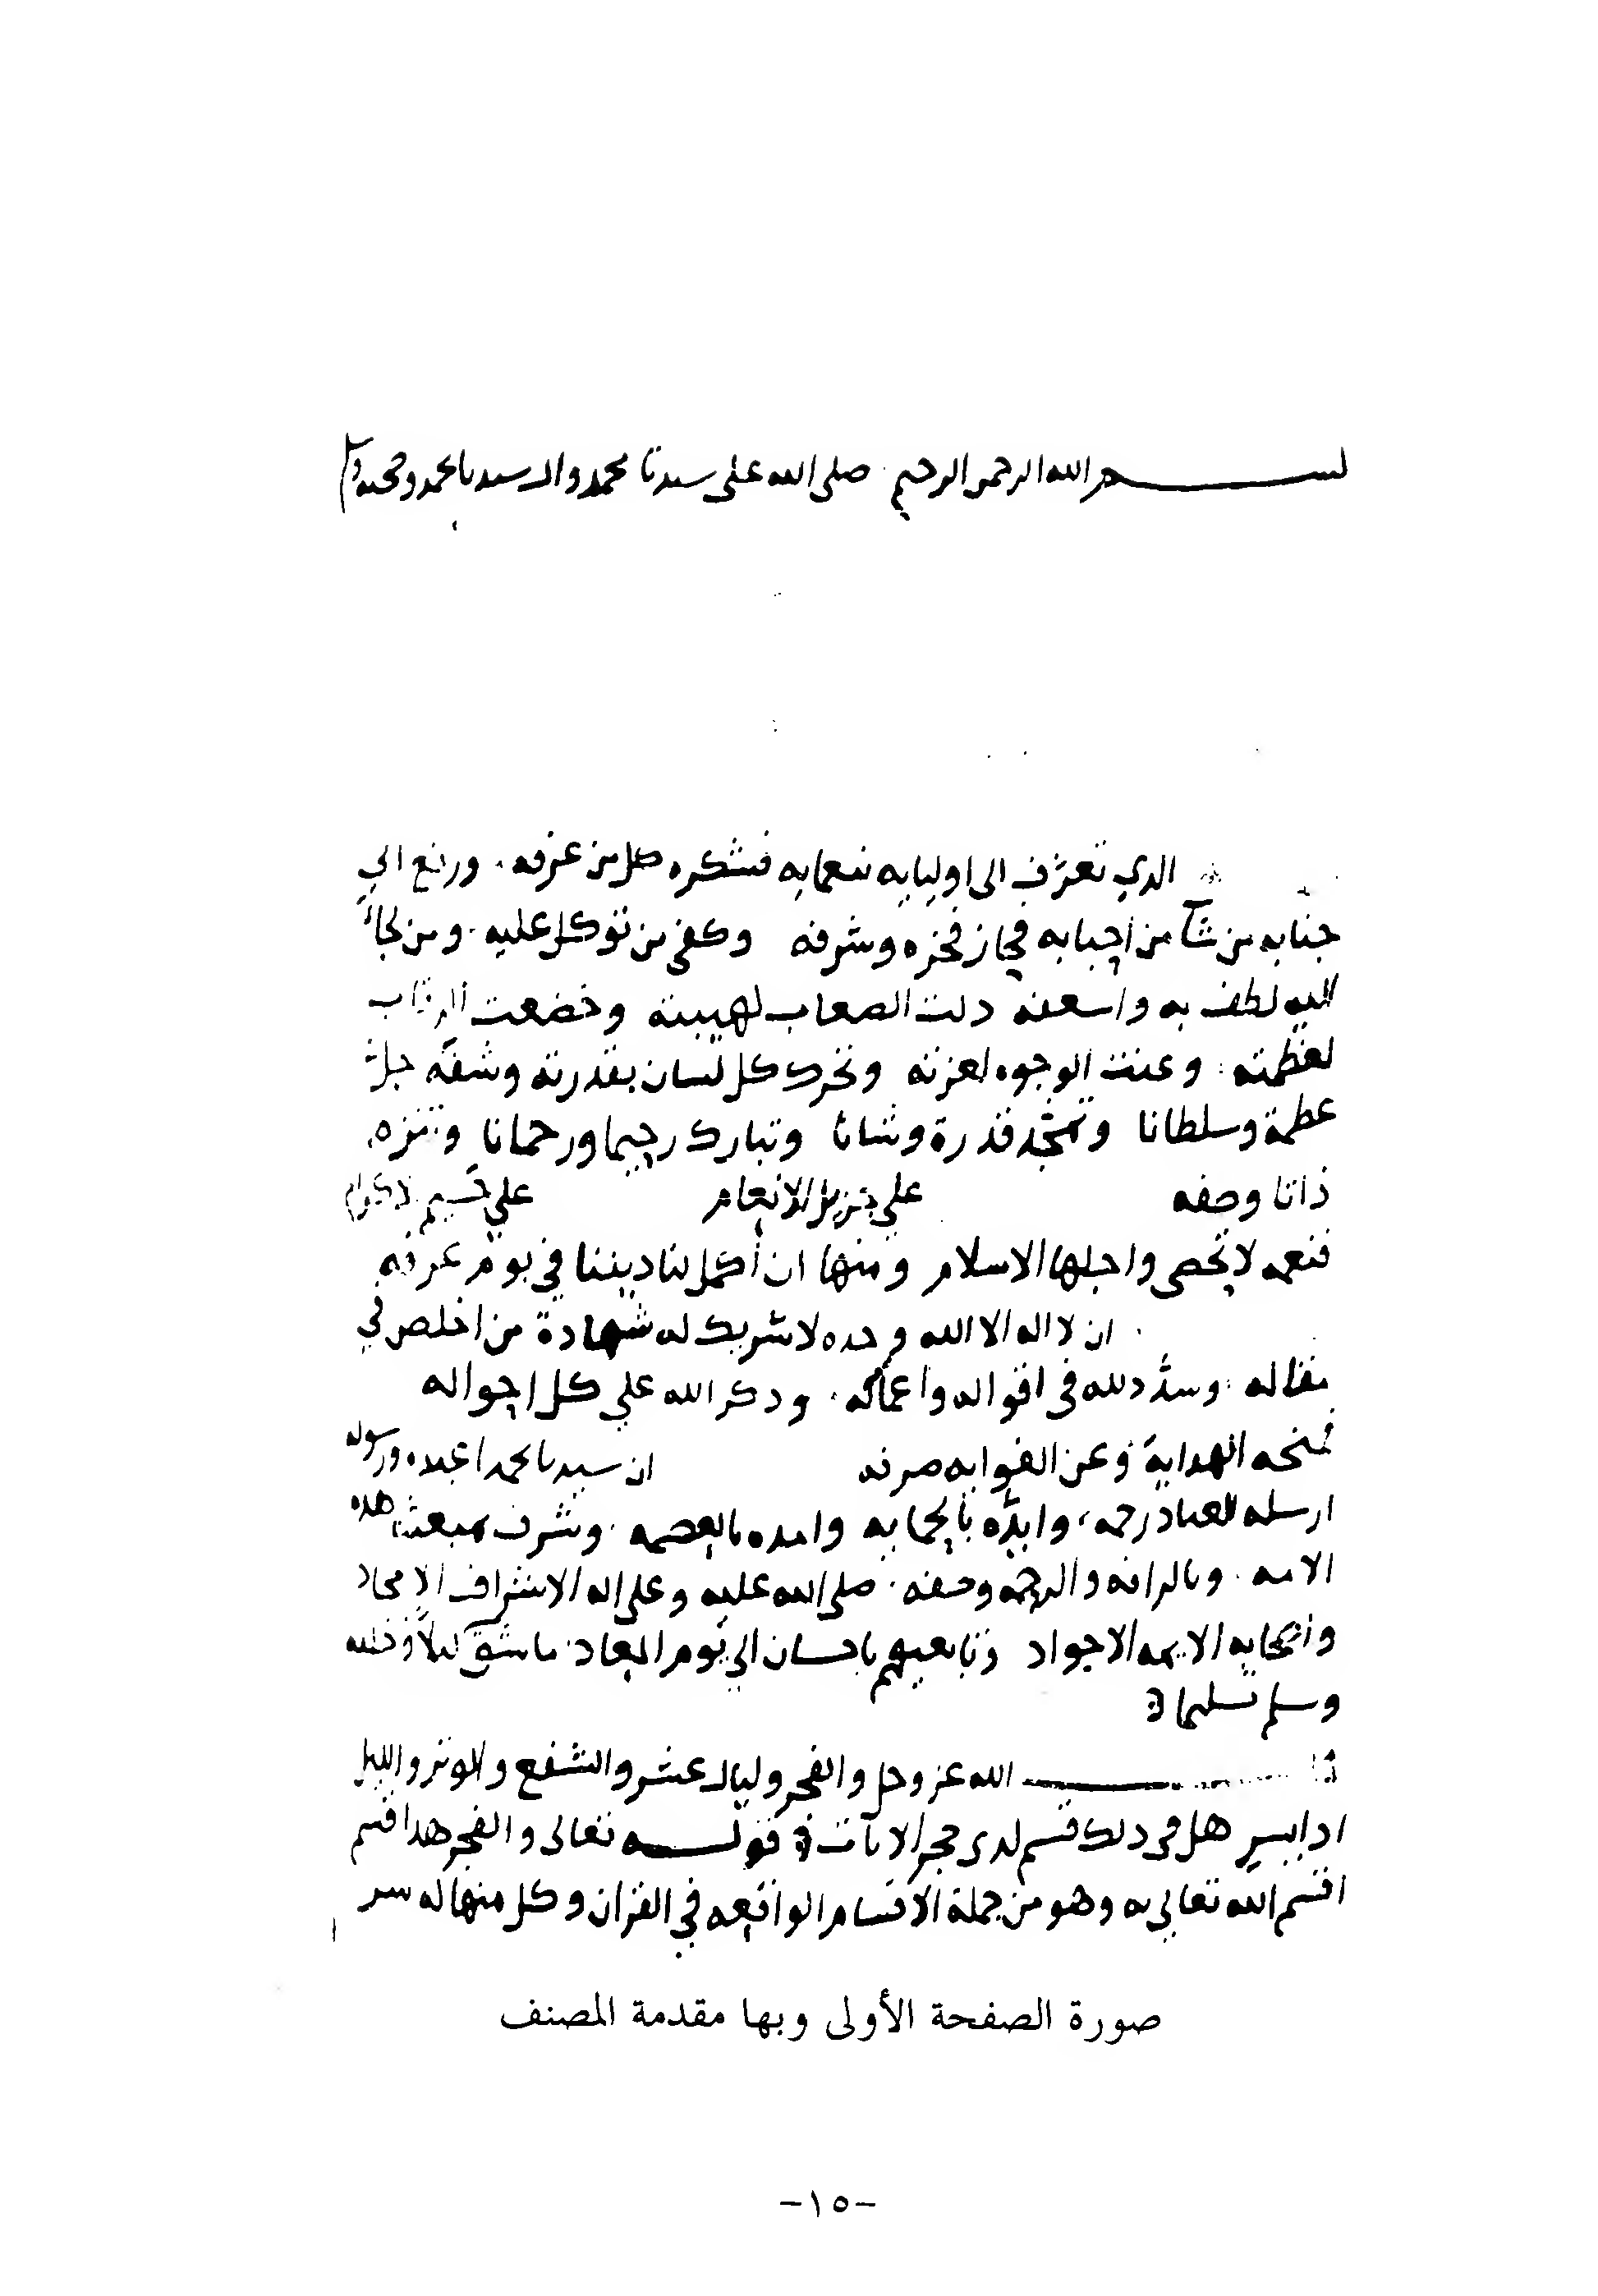 بسم الله الرحمن الرحيم صلى الله على سيدنا محمد وال سيدنا محمد وصحبه
الدي تعرف الى اوليايه بنعمايه فشكره كل من عرفه ورفع الي
جنابه من شآ من احبابه فحاز فخره وشرفه وكفى من توكل عليه ومن لجا
اليه لطف به واسعفه دلت الصعاب لهيبته وخضعت الرقاب
لعظمته وعنت الوجوه لعزته وتحرك كل لسان بقدرته وشفة جل
عظمة وسلطانا وتمجد قدرة وشانا وتبارك رحيما ورحمانا وتنزه
ذاتا وصفه علي جزيل الانعام علي جسيم الاكرام
فنعمه لا تحصى واجلها الاسلام ومنها ان أكمل لنا ديننا في يوم عرفه
ان لا اله الا الله وحده لا شريك له شهادة من اخلص في
مقاله وسدد لله فى اقواله واعماله ودكر الله علي كل احواله
فمنحه الهداية وعن الغوايه صرفه ان سيدنا محمدا عبده ورسوله
ارسله للعباد رحمه وايده بالحمايه وامده بالعصمه وشرف بمبعثه هده
الامه وبالرافه والرحمه وصفه صلى الله عليه وعلى اله الاشراف الامجاد
واصحابه الايمه الاجواد وتابعيهم باحسان الي يوم المعاد
وسلم تسليما
الله عز وجل والفجر وليال عشر والشفع والوتر والليل
ادا يسر هل فى دلك قسم لدى حجر الايات قوله تعالى والفجر هدا قسم
اقسم الله تعالي به وهو من جملة الاقسام الواقعه في القران وكل منها له سر
صورة الصفحة الأولى وبها مقدمة المصنف
-١٥-